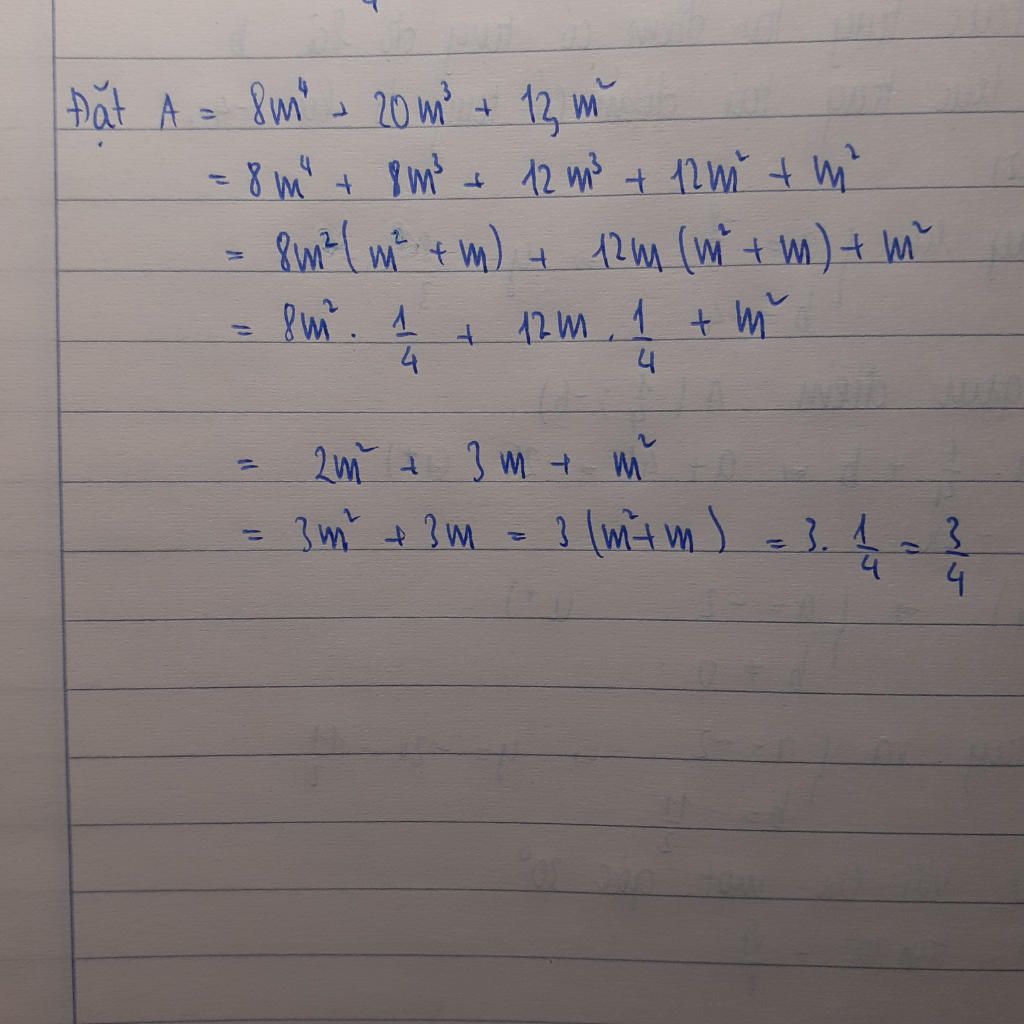 Đặt A = 8m⁴ + 20m³ + 13m²
= 8m⁴ + 8m³ + 12m³ + 12m² + m²
= 8m²(m² + m) + 12m(m² + m) + m²
= 8m² . 1/4 + 12m . 1/4 + m²
= 2m² + 3m + m²
= 3m² + 3m = 3(m²+m) = 3. 1/4 = 3/4